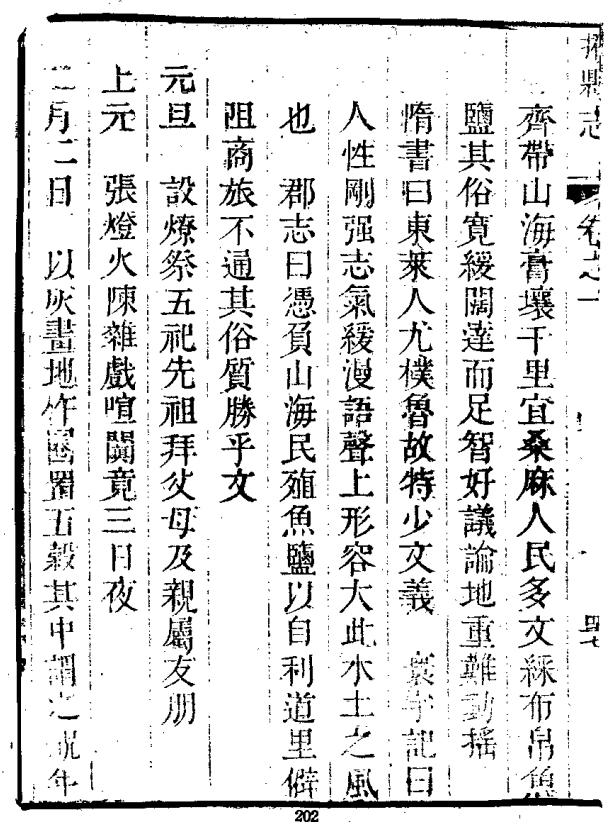 縣志 卷之一
齊帶山海膏壤千里宜桑麻人民多文綵布帛魚
鹽其俗寬緩闊達而足智好議論地重難動搖
隋書曰東萊人尤樸魯故特少文義 寰宇記曰
人性剛强志氣緩漫語聲上形容大此水土之風
也 郡志曰憑負山海民殖魚鹽以自利道里僻
阻商旅不通其俗質勝乎文
元旦 設燎祭五祀先祖拜父母及親屬友朋
上元 張燈火陳雜戲喧闐竟三日夜
月二日 以灰畫地作囷置五穀其中謂之
202